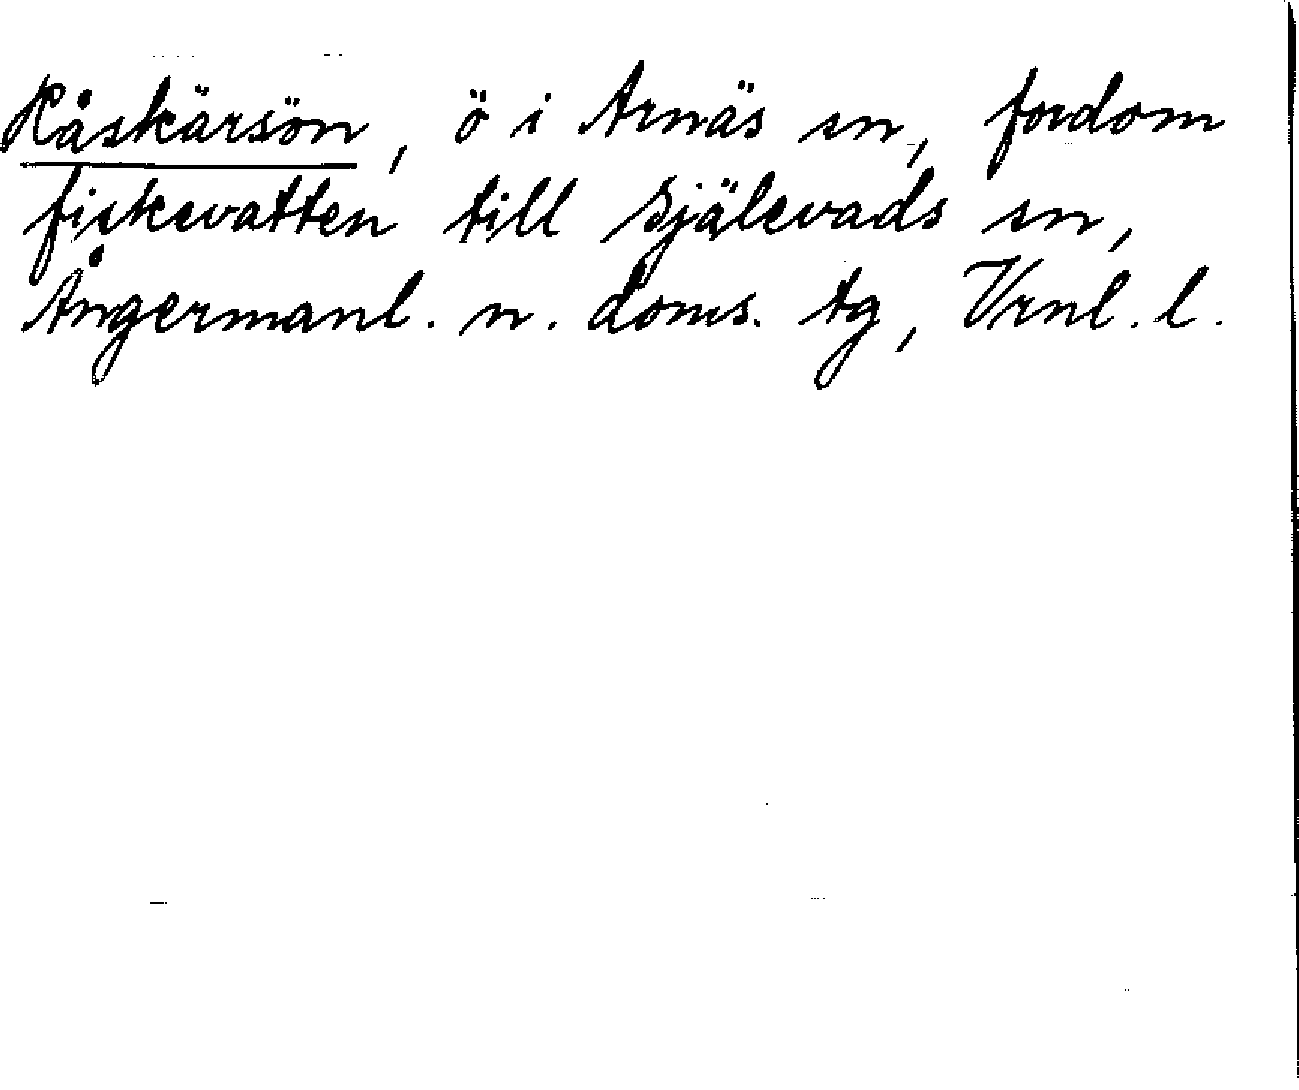 Råskärsön, ö i Arnäs sn, fordom
fiskevatten till Själevads sn,
Ångermanl. n. doms. tg, Vrnl. l.